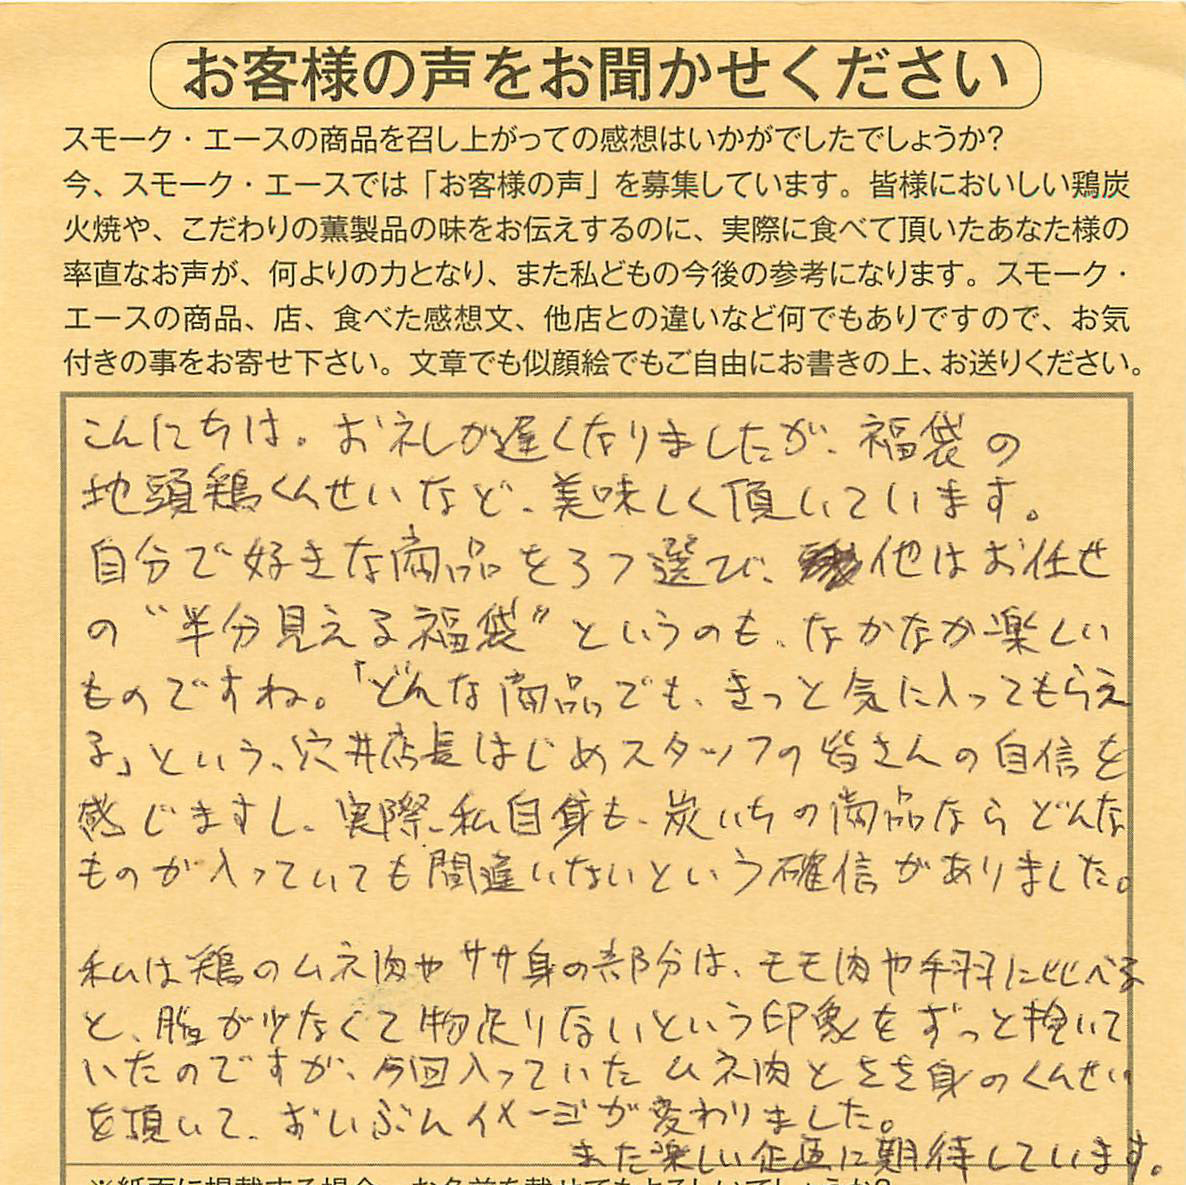 お客様の声をお聞かせください
スモーク・エースの商品を召し上がっての感想はいかがでしたでしょうか?
今、スモーク・エースでは「お客様の声」を募集しています。皆様においしい鶏炭
火焼や、こだわりの薫製品の味をお伝えするのに、実際に食べて頂いたあなた様の
率直なお声が、何よりの力となり、また私どもの今後の参考になります。スモーク・
エースの商品、店、食べた感想文、他店との違いなど何でもありですので、お気
付きの事をお寄せ下さい。文章でも似顔絵でもご自由にお書きの上、お送りください。
こんにちは。お礼が遅くなりましたが、福袋の
地頭鶏くんせいなど、美味しく頂いています。
自分で好きな商品を3つ選び、他はお任せ
の"半分見える福袋"というのも、なかなか楽しい
ものですね。「どんな商品でも、きっと気に入ってもらえ
る」という、穴井店長はじめスタッフの皆さんの自信を
感じますし、実際、私自身も、炭いちの商品ならどんな
ものが入っていても間違いないという確信がありました。
私は鶏のムネ肉やササ身の部分は、モモ肉や手羽に比べる
と、脂が少なくて物足りないという印象をずっと抱いて
いたのですが、今回入っていたムネ肉とささ身のくんせい
を頂いて、ずいぶんイメージが変わりました。
また楽しい企画に期待しています。
※紙面に掲載する場合、お名前を載せてもよろしいでしょうか?